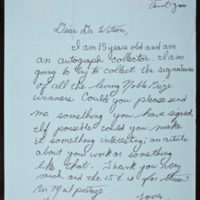 Dear Dr. Watson,
I am 15 years old and am
an autograph collector. I am
going to try to collect the signatures
of all the living Noble Prize
winners. Could you please send
me something you have signed.
If possible could you make
it something interesting, an article
about your work or something
like that. Thank you very
much and the 15¢ is for
postage.
Yours